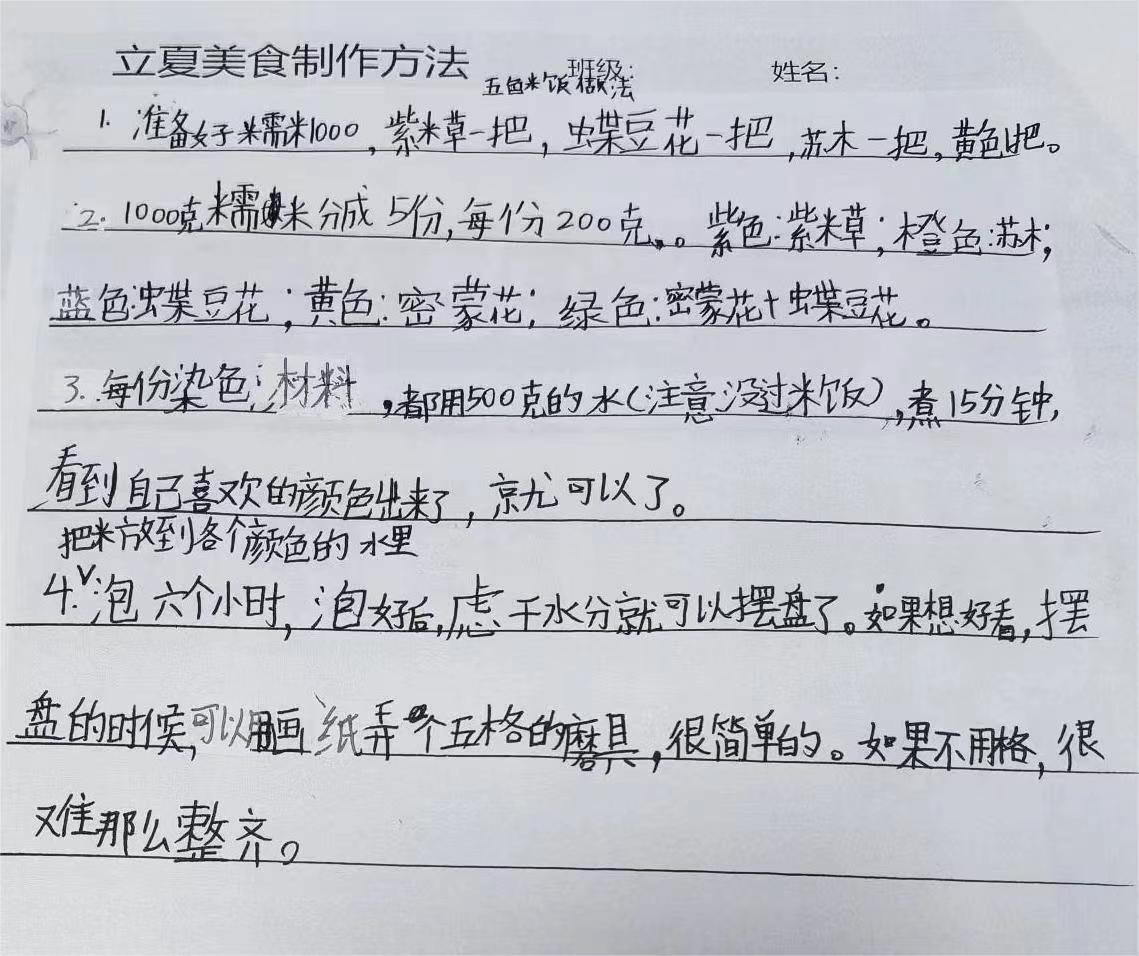 立夏美食制作方法 班级： 姓名：
五色米饭做法
1. 准备好糯米1000，紫米草一把，蝶豆花一把，苏木一把，黄色1把。
2. 1000克糯米分成5份，每份200克。紫色：紫米草；橙色：苏木；
蓝色：蝶豆花；黄色：密蒙花；绿色：密蒙花+蝶豆花。
3. 每份染色材料，都用500克的水（注意没过米饭），煮15分钟，
看到自己喜欢的颜色出来了，就可以了。
把米放到各个颜色的水里
4. 泡六个小时，泡好后，虑干水分就可以摆盘了。如果想好看，摆
盘的时候，可以用画纸弄个五格的磨具，很简单的。如果不用格，很
难那么整齐。